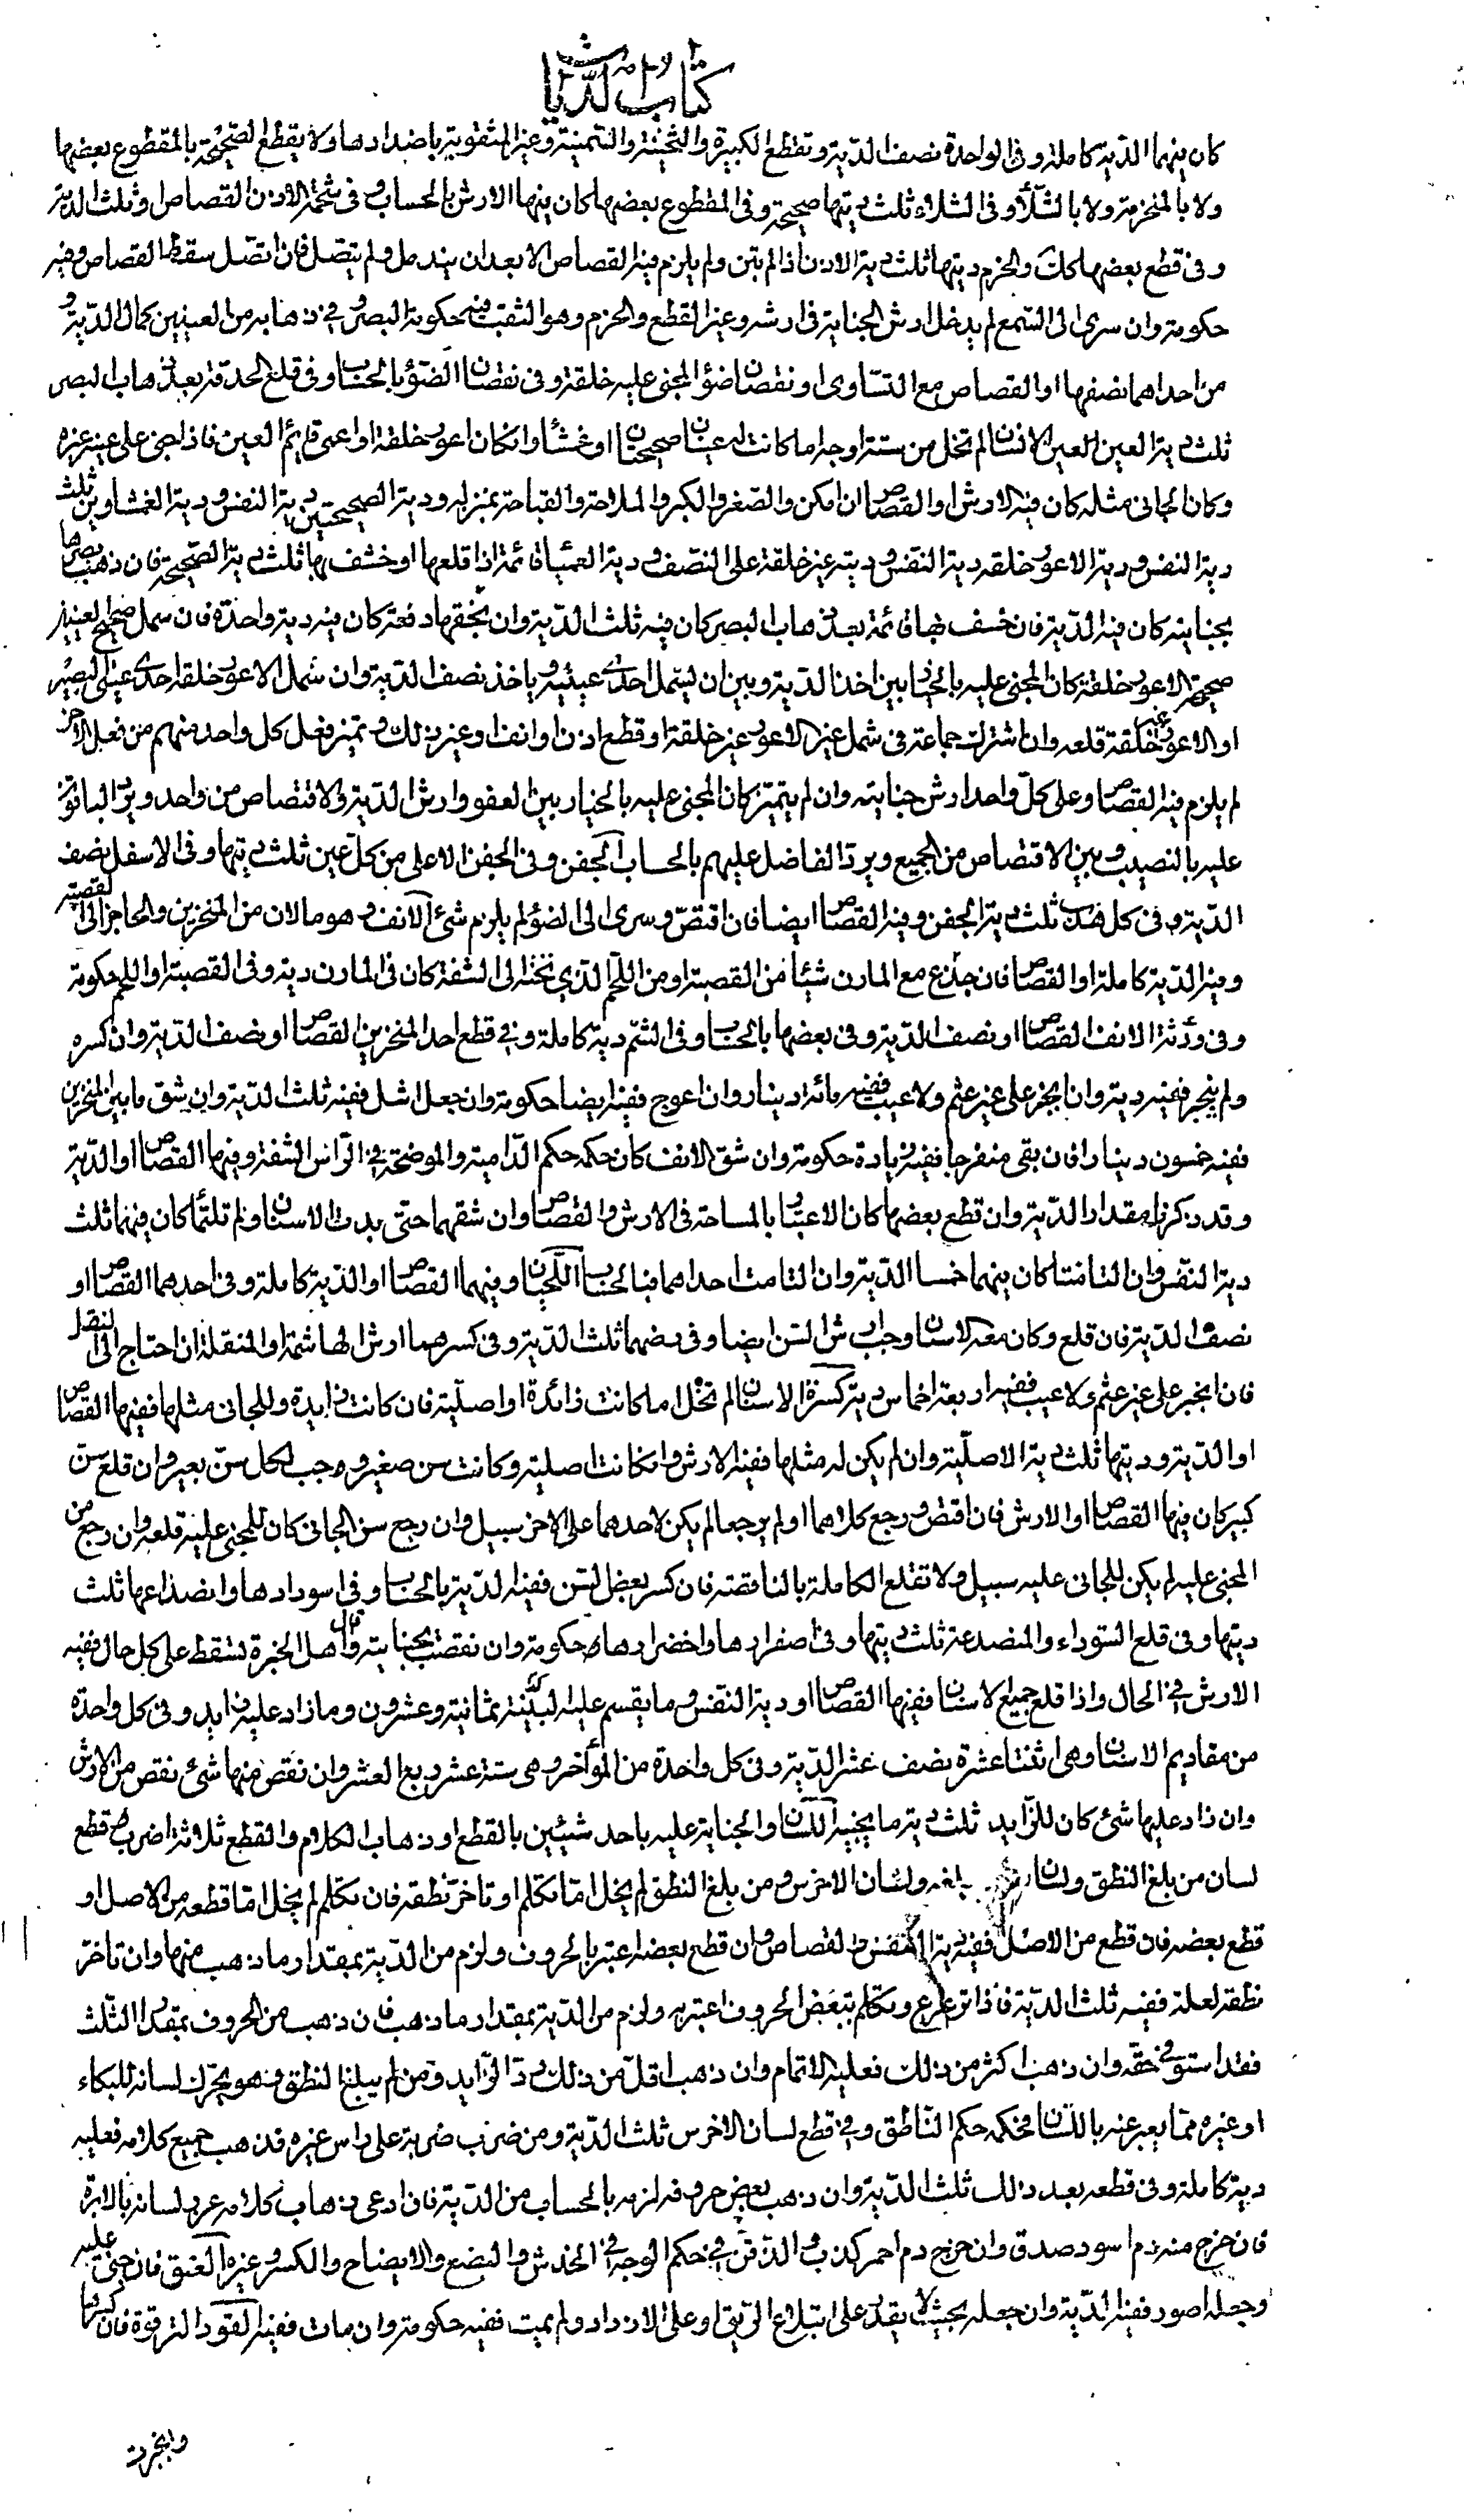 كتاب الديات
كان فيهما الدية كاملة وفى الواحدة نصف الدية وتقطع الكبيرة والثخينة والسمينة وغير المثقوبة باضدادها ولا يقطع الصحيحة بالمقطوع بعضها
ولا بالمنخرمة ولا بالشلاء وفى الشلاء ثلث ديتها صحيحة وفى المقطوع بعضها كان فيها الارش بالحساب وفى شحمة الاذن القصاص وثلث الدية
وفى قطع بعضها كذلك والخرم ديتها ثلث دية الاذن اذا لم يبن ولم يلزم فيه القصاص الا بعد ان يندمل ولم يتصل فان اتصل سقط القصاص وفيه
حكومة وان سرى الى السمع لم يدخل ارش الجناية فى ارشه وغير القطع والخرم وهو الثقب فيه حكومة البصر وفى ذهابه من العينين كمال الدية و
من احداهما نصفها او القصاص مع التساوى او نقصان ضوء المجنى عليه خلقة وفى نقصان الضوء بالحساب وفى قلع الحدقة بعد ذهاب البصر
ثلث دية العين العين الانسان لم تخل من ستة اوجه اما كانت له عينان صحيحتان او غمشاوان او كان اعور خلقة او اعمى قائم العين فاذا جنى على عين غيره
وكان الجانى مثله كان فيه الارش او القصاص ان امكن والصغر والكبر والملاحة والقباحة بمنزلة ودية الصحيحتين دية النفس ودية الغمشاوين ثلث
دية النفس ودية الاعور خلقة دية النفس ودية غير خلقة على النصف ودية العمياء قائمة اذا قلعها او خسف بها ثلث دية الصحيحة فان ذهب بصرها
بجناية كان فيه الدية فان خسف بها قائمة بعد ذهاب البصر كان فيه ثلث الدية وان بخقها دفعة كان فيه دية واحدة فان سمل صحيح العينين
صحيحة الاعور خلقة كان المجنى عليه بالخيار بين اخذ الدية وبين ان يسمل احدى عينيه وياخذ نصف الدية وان سمل الاعور خلقة احدى عينى البصير
او الاعور غير خلقة قلعه وان اشترك جماعة فى سمل عين الاعور غير خلقة او قطع اذن او انف او غير ذلك وتميز فعل كل واحد منهم من فعل الاخر
لم يلزم فيه القصاص وعلى كل واحد ارش جنايته وان لم يتميز كان المجنى عليه بالخيار بين العفو وارش الدية والاقتصاص من واحد ويرد الباقون
عليه بالنصيب وبين الاقتصاص من الجميع ويرد الفاضل عليهم بالحساب الجفن وفى الجفن الاعلى من كل عين ثلث ديتها وفى الاسفل نصف
الدية وفى كل هدب ثلث دية الجفن وفيه القصاص ايضا فان اقتص وسرى الى الضوء لم يلزم شئ الانف وهو ما لان من المنخرين والحاجز الى القصبة
وفيه الدية كاملة او القصاص فان جذع مع المارن شيئا من القصبة او من اللحم الذي تحته الى الشفة كان فى المارن دية وفى القصبة او اللحم حكومة
وفى روثة الانف القصاص او نصف الدية وفى بعضها بالحساب وفى الشم دية كاملة وفى قطع احد المنخرين القصاص او نصف الدية وان كسره
ولم ينجبر ففيه دية وان انجبر على غير عثم ولا عيب ففيه مائة دينار وان اعوج ففيه ايضا حكومة وان جعل اشل ففيه ثلثا الدية وان شق ما بين المنخرين
ففيه خمسون دينارا فان بقى منفرجا ففيه زيادة حكومة وان شق الانف كان حكمه حكم الدامية والموضحة فى الرأس الشفة وفيها القصاص او الدية
وقد ذكرنا مقدار الدية وان قطع بعضها كان الاعتبار بالمساحة فى الارش والقصاص وان شقهما حتى بدت الاسنان ولم تلتئما كان فيهما ثلث
دية النفس وان التامتا كان فيهما خمسا الدية وان التامت احداهما فبالحساب اللحيان وفيهما القصاص او الدية كاملة وفى احدهما القصاص او
نصف الدية فان قلع وكان معه الاسنان وجب ارش السن ايضا وفى رضهما ثلث الدية وفى كسرهما ارش الهاشمة او المنقلة ان احتاج الى النقل
فان انجبر على غير عثم ولا عيب ففيه اربعة اخماس دية كسرة الاسنان لم تخل اما كانت زائدة او اصلية فان كانت زايدة وللجانى مثلها ففيها القصاص
او الدية وديتها ثلث دية الاصلية وان لم يكن له مثلها ففيه الارش وان كانت اصلية وكانت سن صغير وجب لكل سن بعير وان قلع سن
كبير كان فيها القصاص او الارش فان اقتص ورجع كلاهما او لم يرجعا لم يكن لاحدهما على الاخر سبيل وان رجع سن الجانى كان للمجنى عليه قلعه وان رجع سن
المجنى عليه لم يكن للجانى عليه سبيل ولا تقلع الكاملة بالناقصة فان كسر بعض السن ففيه الدية بالحساب وفى اسودادها وانصداعها ثلث
ديتها وفى قلع السوداء والمنصدعة ثلث ديتها وفى اصفرارها واخضرارها حكومة وان نقصت بجنايته وقال اهل الخبرة تسقط على كل حال ففيه
الارش فى الحال واذا قلع جميع الاسنان ففيها القصاص او دية النفس وما يقسم عليه الدية ثمانية وعشرون وما زاد عليه زايد وفى كل واحدة
من مقاديم الاسنان وهى اثنتا عشرة نصف عشر الدية وفى كل واحدة من المؤاخر وهى ستة عشر ربع العشر وان نقص منها شئ نقص من الارش
وان زاد عليها شئ كان للزايد ثلث دية ما يجنبه اللسان والجناية عليه باحد شيئين بالقطع او ذهاب الكلام والقطع ثلاثة اضرب قطع
لسان من بلغ النطق ولسان من يبلغه ولسان الاخرس ومن بلغ النطق لم يخل اما تكلم او تاخر نطقه فان تكلم لم يخل اما قطعه من الاصل او
قطع بعضه فان قطع من الاصل ففيه دية النفس او القصاص وان قطع بعضه اعتبر بالحروف ولزم من الدية بمقدار ما ذهب منها وان تاخر
نطقه لعلة ففيه ثلث الدية فاذا ترعرع وتكلم ببعض الحروف اعتبر به ولزم من الدية بمقدار ما ذهب فان ذهب من الحروف بمقدار الثلث
فقد استوفى حقه وان ذهب اكثر من ذلك فعليه الاتمام وان ذهب اقل من ذلك رد الزايد ومن لم يبلغ النطق وهو يحرك لسانه للبكاء
او غيره مما يعبر عنه باللسان فحكمه حكم الناطق وفى قطع لسان الاخرس ثلث الدية ومن ضرب ضربة على راس غيره فذهب جميع كلامه فعليه
دية كاملة وفى قطعه بعد ذلك ثلث الدية وان ذهب بعض حروفه لزمه بالحساب من الدية فان ادعى ذهاب كلامه غرز لسانه بالابرة
فان خرج منه دم اسود صدق وان خرج دم احمر كذب والذقن فى حكم الوجه فى الخدش والبضع والايضاح والكسر وغيره العنق فان جنى عليه
وجعله اصور ففيه الدية وان جعله بحيث لا يقدر على ابتلاع الريق او على الازدراد ولم يمت ففيه حكومة وان مات ففيه القود الترقوة فان كسرها
وانجبرت